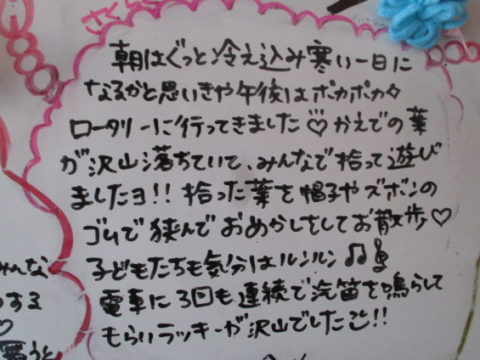 朝はぐっと冷え込み寒い一日に
なるかと思いきや午後はポカポカ
ロータリーに行ってきました♡かえでの葉
が沢山落ちていて、みんなで拾って遊び
ましたヨ!!拾った葉を帽子やズボンの
ゴムで挟んでおめかしをしてお散歩♡
子どもたちも気分はルンルン♫
電車に3回も連続で汽笛を鳴らして
もらいラッキーが沢山でした!!
みんな
する